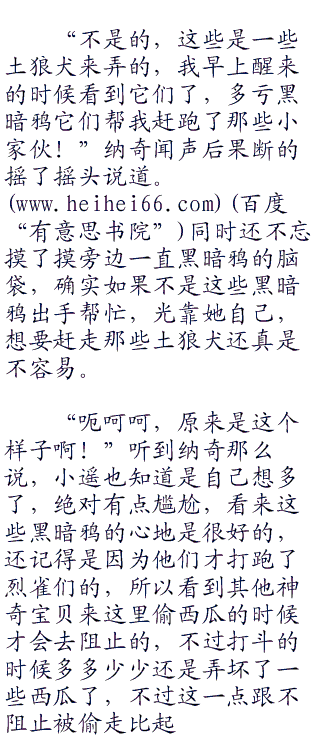 “不是的，这些是一些
土狼犬来弄的，我早上醒来
的时候看到它们了，多亏黑
暗鸦它们帮我赶跑了那些小
家伙！”纳奇闻声后果断的
摇了摇头说道。
(www.heihei66.com)(百度
“有意思书院”)同时还不忘
摸了摸旁边一直黑暗鸦的脑
袋，确实如果不是这些黑暗
鸦出手帮忙，光靠她自己，
想要赶走那些土狼犬还真是
不容易。
“呃呵呵，原来是这个
样子啊！”听到纳奇那么
说，小遥也知道是自己想多
了，绝对有点尴尬，看来这
些黑暗鸦的心地是很好的，
还记得是因为他们才打跑了
烈雀们的，所以看到其他神
奇宝贝来这里偷西瓜的时候
才会去阻止的，不过打斗的
时候多多少少还是弄坏了一
些西瓜了，不过这一点跟不
阻止被偷走比起